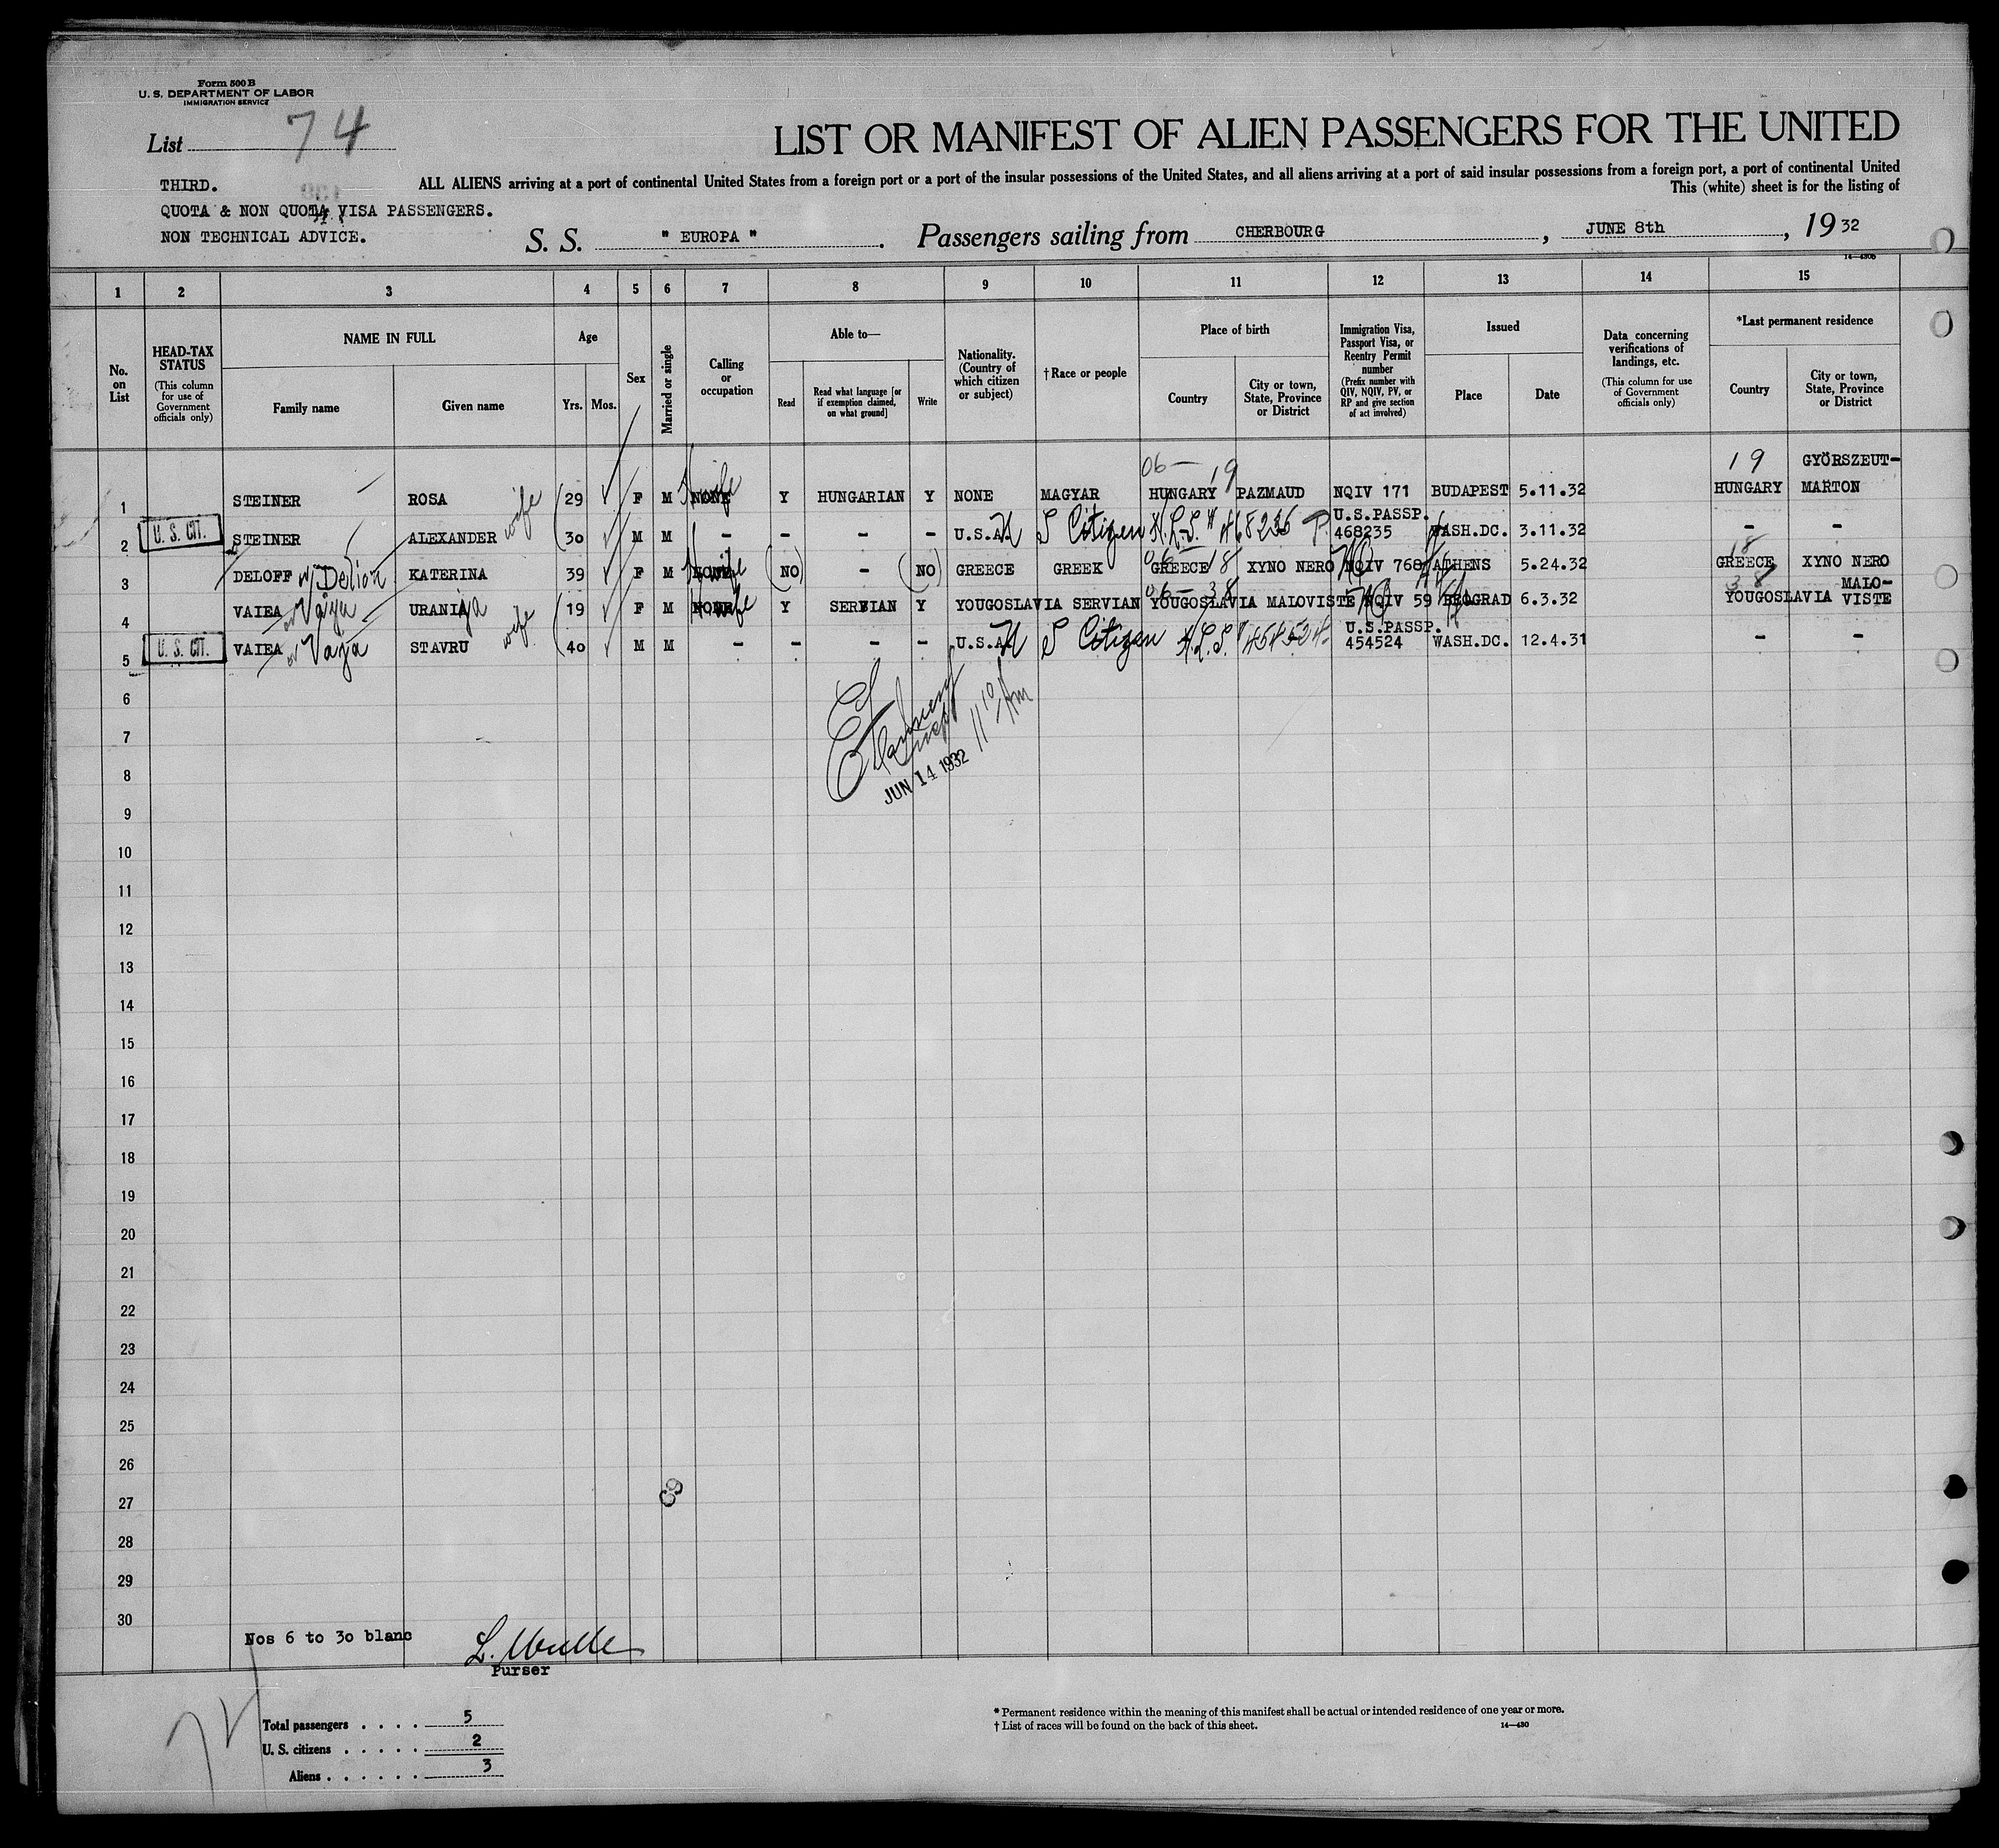 Form 500 B
U. S. DEPARTMENT OF LABOR
IMMIGRATION SERVICE
List 74
LIST OR MANIFEST OF ALIEN PASSENGERS FOR THE UNITED
THIRD.
ALL ALIENS arriving at a port of continental United States from a foreign port or a port of the insular possessions of the United States, and all aliens arriving at a port of said insular possessions from a foreign port, a port of continental United
This (white) sheet is for the listing of
QUOTA & NON QUOTA VISA PASSENGERS.
NON TECHNICAL ADVICE.
S. S. " EUROPA " . Passengers sailing from CHERBOURG , JUNE 8th , 19 32
14—430b
1 2 3 4 5 6 7 8 9 10 11 12 13 14 15
No. on List
HEAD-TAX STATUS
(This column for use of Government officials only)
NAME IN FULL
Family name Given name
Age
Yrs. Mos.
Sex
Married or single
Calling or occupation
Able to—
Read
Read what language [or if exemption claimed, on what ground]
Write
Nationality. (Country of which citizen or subject)
†Race or people
Place of birth
Country
City or town, State, Province or District
Immigration Visa, Passport Visa, or Reentry Permit number
(Prefix number with QIV, NQIV, PV, or RP and give section of act involved)
Issued
Place Date
Data concerning verifications of landings, etc.
(This column for use of Government officials only)
*Last permanent residence
Country
City or town, State, Province or District
06— 19 19 GYÖRSZEUT-
1 STEINER ROSA wife 29 F M NONE H wife Y HUNGARIAN Y NONE MAGYAR HUNGARY PAZMAUD NQIV 171 BUDAPEST 5.11.32 HUNGARY MARTON
U.S.PASSP.
2 U. S. CIT. STEINER ALEXANDER 30 M M - - - - U.S.A. U S Citizen 468235 WASH.DC. 3.11.32 - -
06— 18 18
3 DELOFF or Delion KATERINA 39 F M NONE H wife NO - NO GREECE GREEK GREECE XYNO NERO NQIV 768 ATHENS 5.24.32 GREECE XYNO NERO
06— 38 38 MALO-
4 VAIEA or Vaya URANIA wife 19 F M NONE H wife Y SERBIAN Y YOUGOSLAVIA SERVIAN YOUGOSLAVIA MALOVISTE NQIV 59 BEOGRAD 6.3.32 YOUGOSLAVIA VISTE
U.S.PASSP.
5 U. S. CIT. VAIEA or Vaya STAVRU 40 M M - - - - U.S.A. U S Citizen 454524 454524 WASH.DC. 12.4.31 - -
6
7
JUN 14 1932
8
9
10
11
12
13
14
15
16
17
18
19
20
21
22
23
24
25
26
69
27
28
29
30
Nos 6 to 30 blanc
Purser
74
Total passengers . . . . 5
U. S. citizens . . . . . 2
Aliens . . . . . . 3
* Permanent residence within the meaning of this manifest shall be actual or intended residence of one year or more.
† List of races will be found on the back of this sheet. 14—430